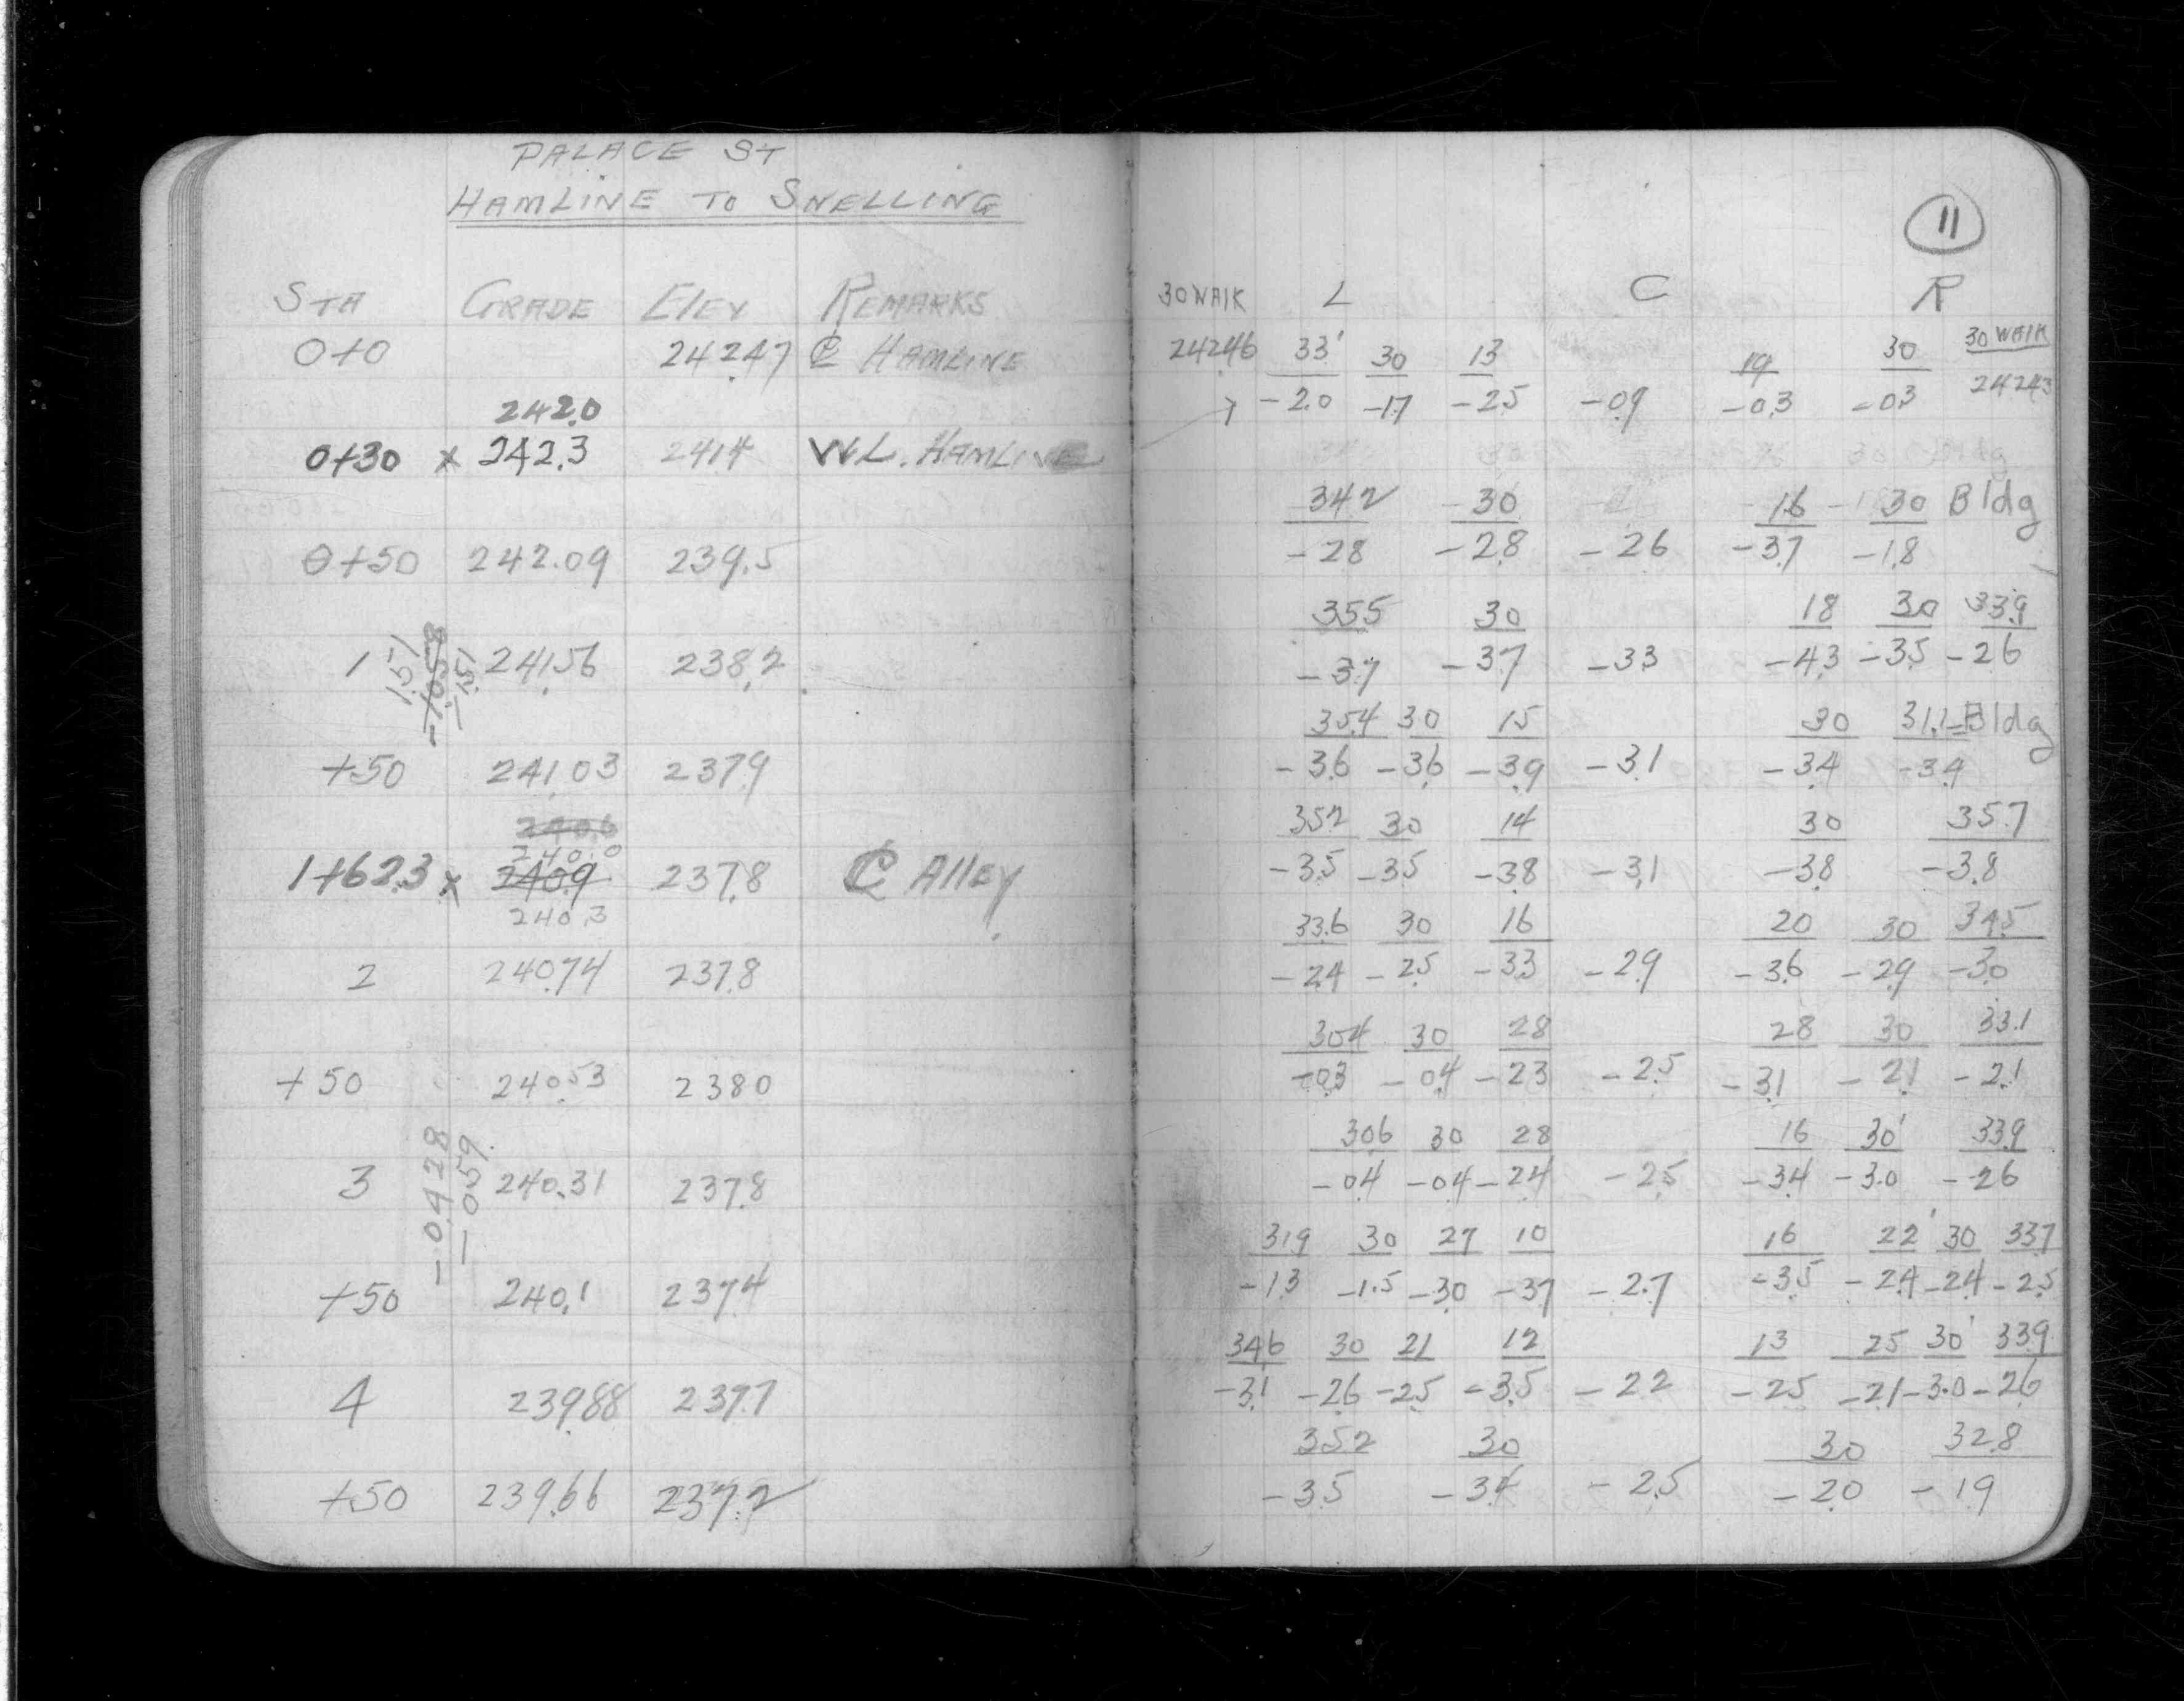 PALACE ST
HAMLINE TO SNELLING
STA GRADE ELEV REMARKS
0+0 242.47 ℄ HAMLINE
242.0
0+30 x 242.3 241.4 W.L. HAMLINE
0+50 242.09 239.5
1 241.56 238.2
1.51
-1.058
-.151
+50 241.03 237.9
240.6
240.0
1+62.3 x 240.9 237.8 ℄ Alley
240.3
2 240.74 237.8
+50 240.53 238.0
3 240.31 237.8
-0.428
-0.59
+50 240.1 237.4
4 239.88 237.7
+50 239.66 237.2
11
30 WALK L C R
242.46 33' 30 13 19 30 30 WALK
-2.0 -1.7 -2.5 -0.9 -0.3 -0.3 242.43
34.2 30 16 30 Bldg
-2.8 -2.8 -2.6 -3.7 -1.8
35.5 30 18 30 33.9
-3.7 -3.7 -3.3 -4.3 -3.5 -2.6
35.4 30 15 30 31.1=Bldg
-3.6 -3.6 -3.9 -3.1 -3.4 -3.4
35.2 30 14 30 35.7
-3.5 -3.5 -3.8 -3.1 -3.8 -3.8
33.6 30 16 20 30 34.5
-2.4 -2.5 -3.3 -2.9 -3.6 -2.9 -3.0
30.4 30 28 28 30 33.1
-0.3 -0.4 -2.3 -2.5 -3.1 -2.1 -2.1
30.6 30 28 16 30' 33.9
-0.4 -0.4 -2.4 -2.5 -3.4 -3.0 -2.6
31.9 30 27 10 16 22' 30 33.7
-1.3 -1.5 -3.0 -3.7 -2.7 -3.5 -2.4 -2.4 -2.5
34.6 30 21 12 13 25 30' 33.9
-3.1 -2.6 -2.5 -3.5 -2.2 -2.5 -2.1 -3.0 -2.6
35.2 30 30 32.8
-3.5 -3.4 -2.5 -2.0 -1.9